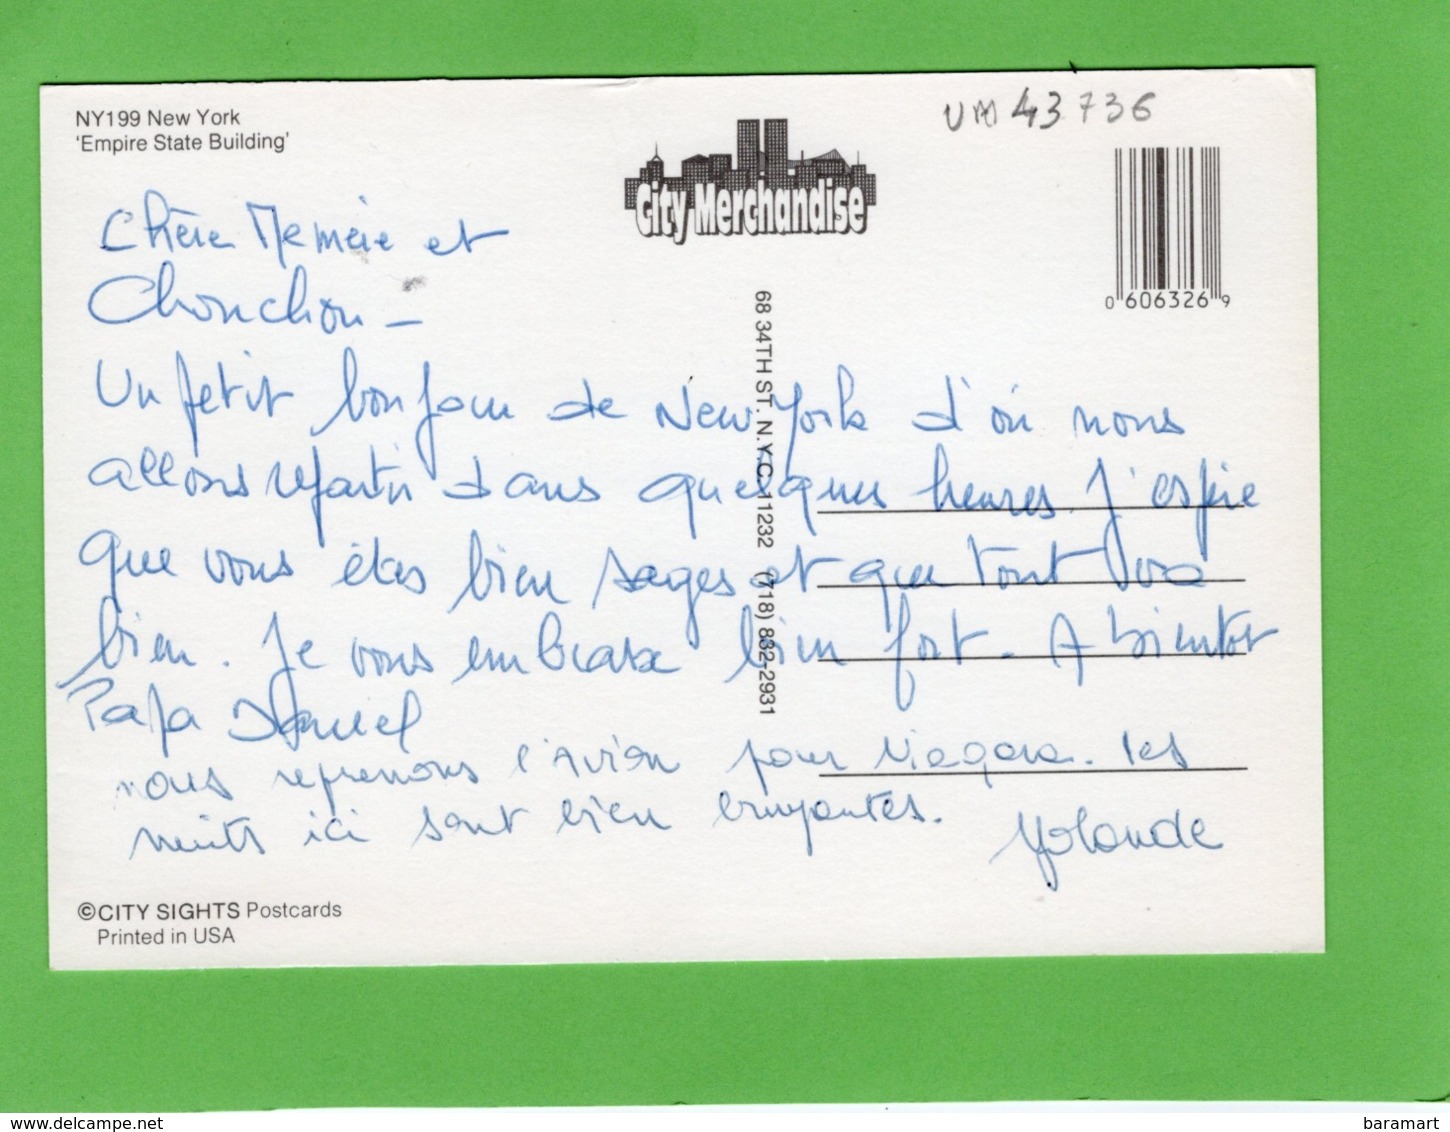 NY199 New York
'Empire State Building'
UM 43736
City Merchandise
0 606326 9
68 34TH ST. N.Y.C. 11232 (718) 832-2931
Chère Mémère et
Chonchon -
Un petit bonjour de New York d'où nous
allons repartir dans quelques heures. J'espère
que vous êtes bien sages et que tout va
bien. Je vous embrasse bien fort - A bientôt
Papa Daniel
nous reprenons l'Avion pour Niagara. Les
nuits ici sont bien bruyantes. Yolande
©CITY SIGHTS Postcards
Printed in USA
www.delcampe.net
baramart